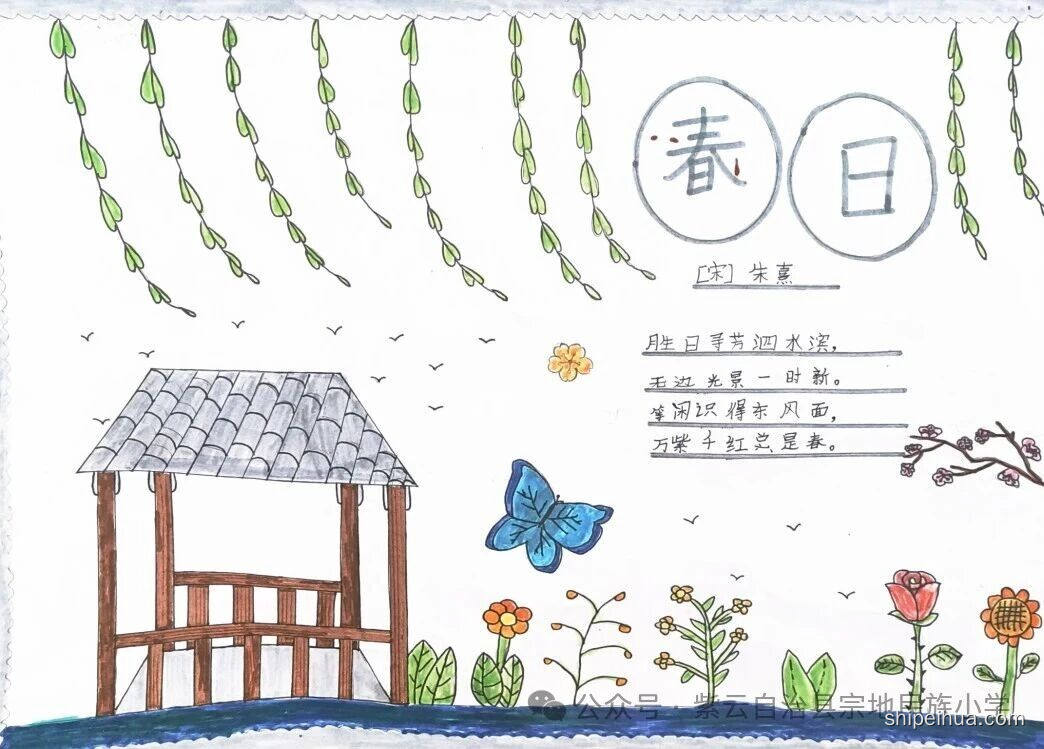 春日
[宋] 朱熹
胜日寻芳泗水滨，
无边光景一时新。
等闲识得东风面，
万紫千红总是春。
公众号·紫云自治县宗地民族小学
shipeihua.com